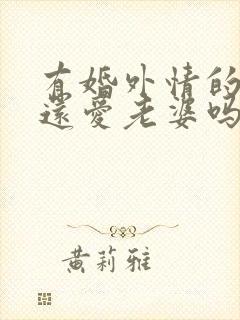 有婚外情的
還愛老婆吗
黄莉雅